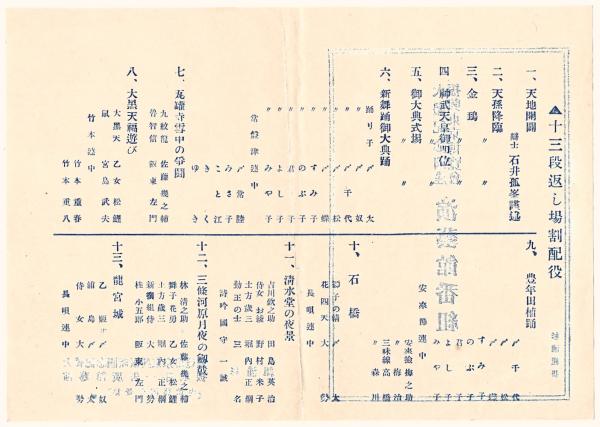 十三段返し場割配役
一、天地開闢
辯士 石井孤峯
二、天孫降臨
三、金鵄 〃
四、神武天皇御即位
五、御大典式場 〃
六、新舞踊御大典踊
踊り子 〆大
〃 〆松
〃 〆千代
〃 〆奴
〃 〆蝶
〃 すみ子
〃 のぶ子
〃 君子
〃 よし子
〃 みや子
常盤津連中
常陸
みさ子
こと江
きく
ゆき
七、瓦罐寺雪中の爭闘
九紋龍 佐藤幾之輔
魯智信 阪東左門
八、大黒天福遊び
大黒天 乙女松鯉
鼠 宮島武夫
竹本連中
竹本重春
竹本重八
九、豊年田植踊
〆千代
〆松
〆蝶
すみ子
のぶ子
君子
よし子
みや子
安來節連中
安來節 梅之助
〃 梅治
三味線 高橋
〃 森川
十、石橋
獅子の精 〆松
花四天 大
長唄連中
十一、清水堂の夜景
吉川欽之助 田島英治
侍女お綾 野村米子
土方歳三 堀内正綱
勤王の士 三名
詩吟 國守一誠
十二、三條河原月夜の劔戟
林清之助 佐藤幾之輔
舞子花勇 乙女松鯉
土方歳三 堀内正綱
新撰組侍 大勢
桂小五郎 阪東左門
十三、龍宮城
乙姫 〆奴
浦島 〆大
侍女 大勢
長唄連中